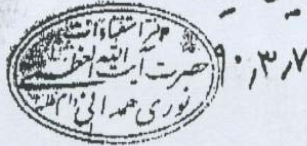 دفتر استفتاءات
حضرت آیت الله العظمی
نوری همدانی دام ظله
۹۰٫۳٫۷